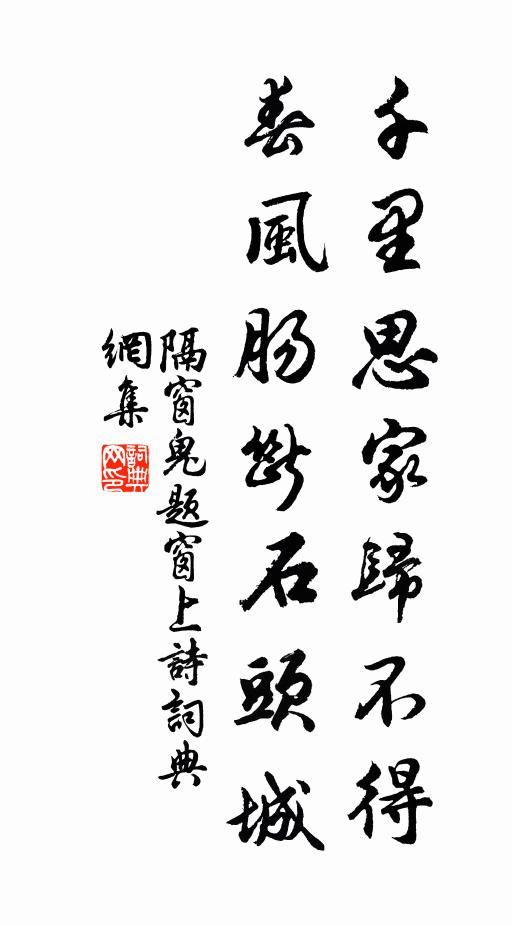 千里思家歸不得
春風腸斷石頭城
隔窗鬼题窗上詩詞典
網集
詞典网印